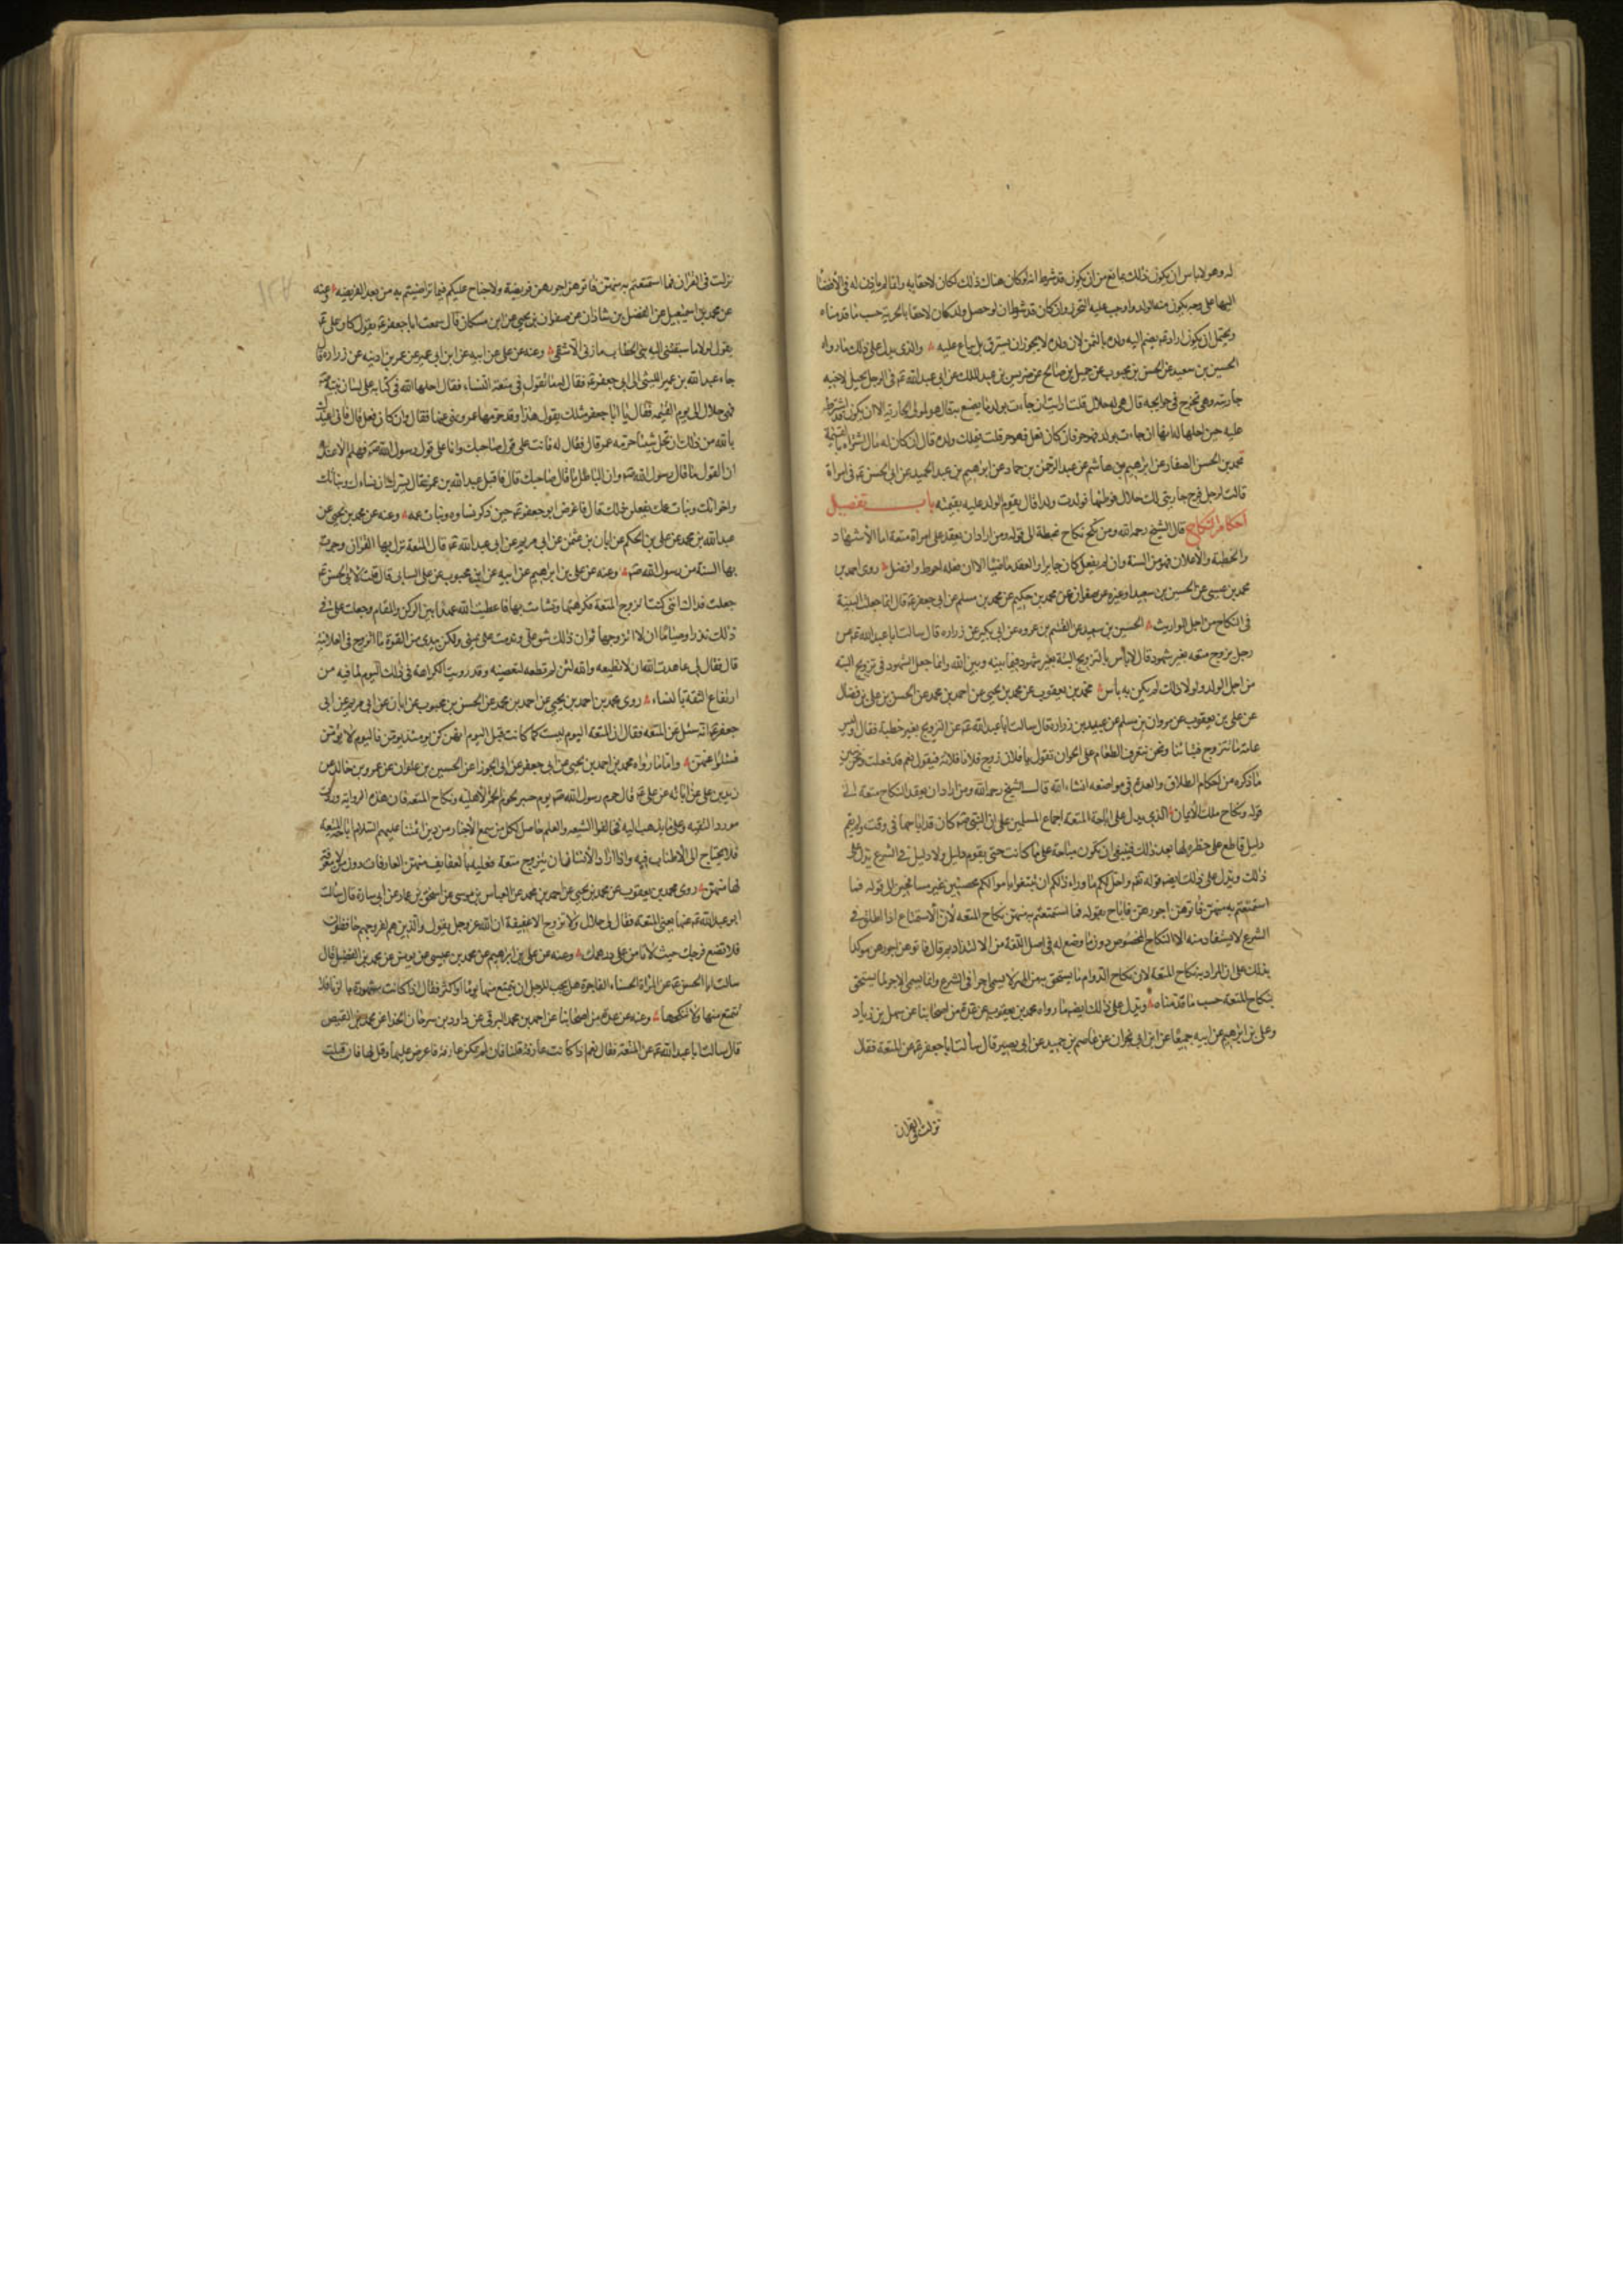 له وهو لا باس ان يكون ذلك مانع من ان يكون قد شرط انه لو كان هناك ذلك لكان لاحقا به وانما لم ياذن له في الافضا
اليها على وجه يكون منه الولد واوجب عليه التحرز وان كان قد شرط ان لو حصل ولد كان لاحقا بالحرية حسب ما قدمناه
ويحتمل ان يكون اراد ع يضم اليه ولده بالثمن لان ولده لا يجوز ان يسترق بل يباع عليه والذي يدل على ذلك ما رواه
الحسين بن سعيد عن الحسن بن محبوب عن جميل بن صالح عن ضريس بن عبد الملك عن ابي عبد الله ع في الرجل يحل لاخيه
جاريته وهي تخرج في حوايجه قال هي له حلال قلت ارايت ان جاءت بولد ما يصنع به قال هو لمولى الجارية الا ان يكون قد اشترط
عليه حين احلها له انها ان جاءت بولد فهو حر فان كان فعل فهو حر قلت فيملك ولده قال ان كان له مال اشتراه بالقيمة
محمد بن الحسن الصفار عن ابرهيم بن هاشم عن عبد الرحمن بن حماد عن ابرهيم بن عبد الحميد عن ابي الحسن ع في امراة
قالت لرجل فرج جاريتي لك حلال فوطئها فولدت ولدا قال يقوم الولد عليه بقيمته باب تفصيل
احكام النكاح قال الشيخ رحمه الله ومن نكح نكاح غبطة الى قوله ومن اراد ان يعقد على امراة متعة اما الاشهاد
والخطبة والاعلان فهو من السنة وان لم يفعل كان جايزا والعقد ماضيا الا ان فعله احوط وافضل روى احمد بن
محمد بن عيسى عن الحسين بن سعيد او غيره عن صفوان عن محمد بن حكيم عن محمد بن مسلم عن ابي جعفر ع قال انما جعلت البينة
في النكاح من اجل المواريث الحسين بن سعيد عن القسم بن عروه عن ابن بكير عن زراره قال سالت ابا عبد الله ع عن
رجل تزوج متعه بغير شهود قال لا باس بالتزويج البتة بغير شهود فيما بينه وبين الله وانما جعل الشهود في تزويج البته
من اجل الولد ولولا ذلك لم يكن به باس محمد بن يعقوب عن محمد بن يحيى عن احمد بن محمد عن الحسن بن علي بن فضال
عن علي بن يعقوب عن مروان بن مسلم عن عبيد بن زراره قال سالت ابا عبد الله ع عن التزويج بغير خطبة فقال اوليس
عامة ما نتزوج فتياتنا ونحن نتعرق الطعام على الخوان نقول يا فلان زوج فلانا فلانة فيقول نعم قد فعلت ونحن نبين
ما ذكره من احكام الطلاق والعدة في مواضعه انشاء الله قال الشيخ رحمه الله ومن اراد ان يعقد النكاح متعة الى
قوله ونكاح ملك الايمان الذي يدل على اباحة المتعة اجماع المسلمين على ان النبي ص كان قد اباحها في وقت ولم يقم
دليل قاطع على حظره لها بعد ذلك فينبغي ان تكون مباحة على ما كانت حتى يقوم دليل ولا دليل في الشرع يدل على
ذلك ويدل على ذلك ايضا قوله تعم واحل لكم ما وراء ذلكم ان تبتغوا باموالكم محصنين غير مسافحين الى قوله فما
استمتعتم به منهن فاتوهن اجورهن فاباح بقوله فما استمتعتم به منهن نكاح المتعه لان الاستمتاع اذا اطلق في
الشرع لا يستفاد منه الا النكاح المخصوص دون ما وضع له في اصل اللغة من الالتذاذ ثم قال فاتوهن اجورهن موكدا
بذلك على ان المراد به نكاح المتعة لان نكاح الدوام ما يستحق به من المهر لا يسمى اجرا في الشرع وانما يسمى الاجر لما يستحق
بنكاح المتعة حسب ما قدمناه ويدل على ذلك ايضا ما رواه محمد بن يعقوب عن عدة من اصحابنا عن سهل بن زياد
وعلي بن ابرهيم عن ابيه جميعا عن ابن ابي نجران عن عاصم بن حميد عن ابي بصير قال سالت ابا جعفر ع عن المتعة فقال
نزلت في القران
نزلت في القران فما استمتعتم به منهن فاتوهن اجورهن فريضة ولا جناح عليكم فيما تراضيتم به من بعد الفريضه وعنه
عن محمد بن اسمعيل عن الفضل بن شاذان عن صفوان بن يحيى عن ابن مسكان قال سمعت ابا جعفر ع يقول كان علي ع
يقول لولا ما سبقني اليه بني الخطاب ما زنى الا شقي وعنه عن علي عن ابيه عن ابن ابي عمير عن عمر بن اذينه عن زراره قال
جاء عبد الله بن عمير الليثي الى ابي جعفر ع فقال له ما تقول في متعة النساء فقال احلها الله في كتابه على لسان نبيه ص
فهي حلال الى يوم القيمه فقال يا ابا جعفر مثلك يقول هذا وقد حرمها عمر ونهى عنها فقال وان كان فعل قال فاني اعيذك
بالله من ذلك ان تحل شيئا حرمه عمر قال فقال له فانت على قول صاحبك وانا على قول رسول الله ص فهلم الاعنك
ان القول ما قال رسول الله ص وان الباطل ما قال صاحبك قال فاقبل عبد الله بن عمير فقال يسرك ان نساءك وبناتك
واخواتك وبنات عمك يفعلن ذلك قال فاعرض ابو جعفر ع حين ذكر نساءه وبنات عمه وعنه عن محمد بن يحيى عن
عبد الله بن محمد عن علي بن الحكم عن ابان بن عثمن عن ابي مريم عن ابي عبد الله ع قال المتعة نزل بها القران وجرت
بها السنة من رسول الله ص وعنه عن علي بن ابراهيم عن ابيه عن ابن محبوب عن علي السايي قال قلت لابي الحسن ع
جعلت فداك انني كنت اتزوج المتعة فكرهتها وتشامت بها فاعطيت الله عهدا بين الركن والمقام وجعلت علي في
ذلك نذرا وصياما ان لا اتزوجها ثم ان ذلك شق علي وندمت على يميني ولكن بيدي من القوة ما اتزوج في العلانية
قال فقال لي عاهدت الله ان لا تطيعه والله لئن لم تطعه لتعصينه وقد رويت الكراهة في ذلك اليوم لما فيه من
ارتفاع الثقة بالنساء روى محمد بن احمد بن يحيى عن احمد بن محمد عن الحسن بن محبوب عن ابان عن ابي مريم عن ابي
جعفر ع انه سئل عن المتعه فقال ان المتعه اليوم ليست كما كانت قبل اليوم انهن كن يومئذ يؤمن فاليوم لا يؤمن
فسئلوا عنهن واما ما رواه محمد بن احمد بن يحيى عن ابي جعفر عن ابي الجوزا عن الحسين بن علوان عن عمرو بن خالد عن
زيد بن علي عن ابائه عن علي ع قال حرم رسول الله ص يوم خيبر لحوم الحمر الاهلية ونكاح المتعه فان هذه الرواية وردت
مورد التقيه وعلى ما يذهب اليه مخالفوا الشيعه والعلم حاصل لكل من سمع الاخبار من دين ائمتنا عليهم السلام اباحة المتعة
فلا يحتاج الى الاطناب فيه واذا اراد الانسان ان يتزوج متعة فعليه بالعفايف منهن العارفات دون من لا معرفة
لها منهن روى محمد بن يعقوب عن محمد بن يحيى عن احمد بن محمد عن العباس بن موسى عن اسحق بن عمار عن ابي سارة قال سالت
ابو عبد الله ع عنها يعني المتعه فقال لي حلال ولا تزوج الا عفيفة ان الله عز وجل يقول والذين هم لفروجهم حافظون
فلا تضع فرجك حيث لا تامن على درهمك وعنه عن علي بن ابراهيم عن محمد بن عيسى عن يونس عن محمد بن الفضيل قال
سالت ابا الحسن ع عن المراة الحسناء الفاجرة هل يجب للرجل ان يتمتع منها يوما او اكثر فقال اذا كانت مشهورة بالزنا فلا
تتمتع منها ولا تنكحها وعنه عن عدة من اصحابنا عن احمد بن محمد البرقي عن داود بن سرحان الحذا عن محمد بن الفيض
قال سالت ابا عبد الله ع عن المتعة فقال نعم اذا كانت عارفة قلنا فان لم تكن عارفة فاعرض عليها وقل لها فان قبلت